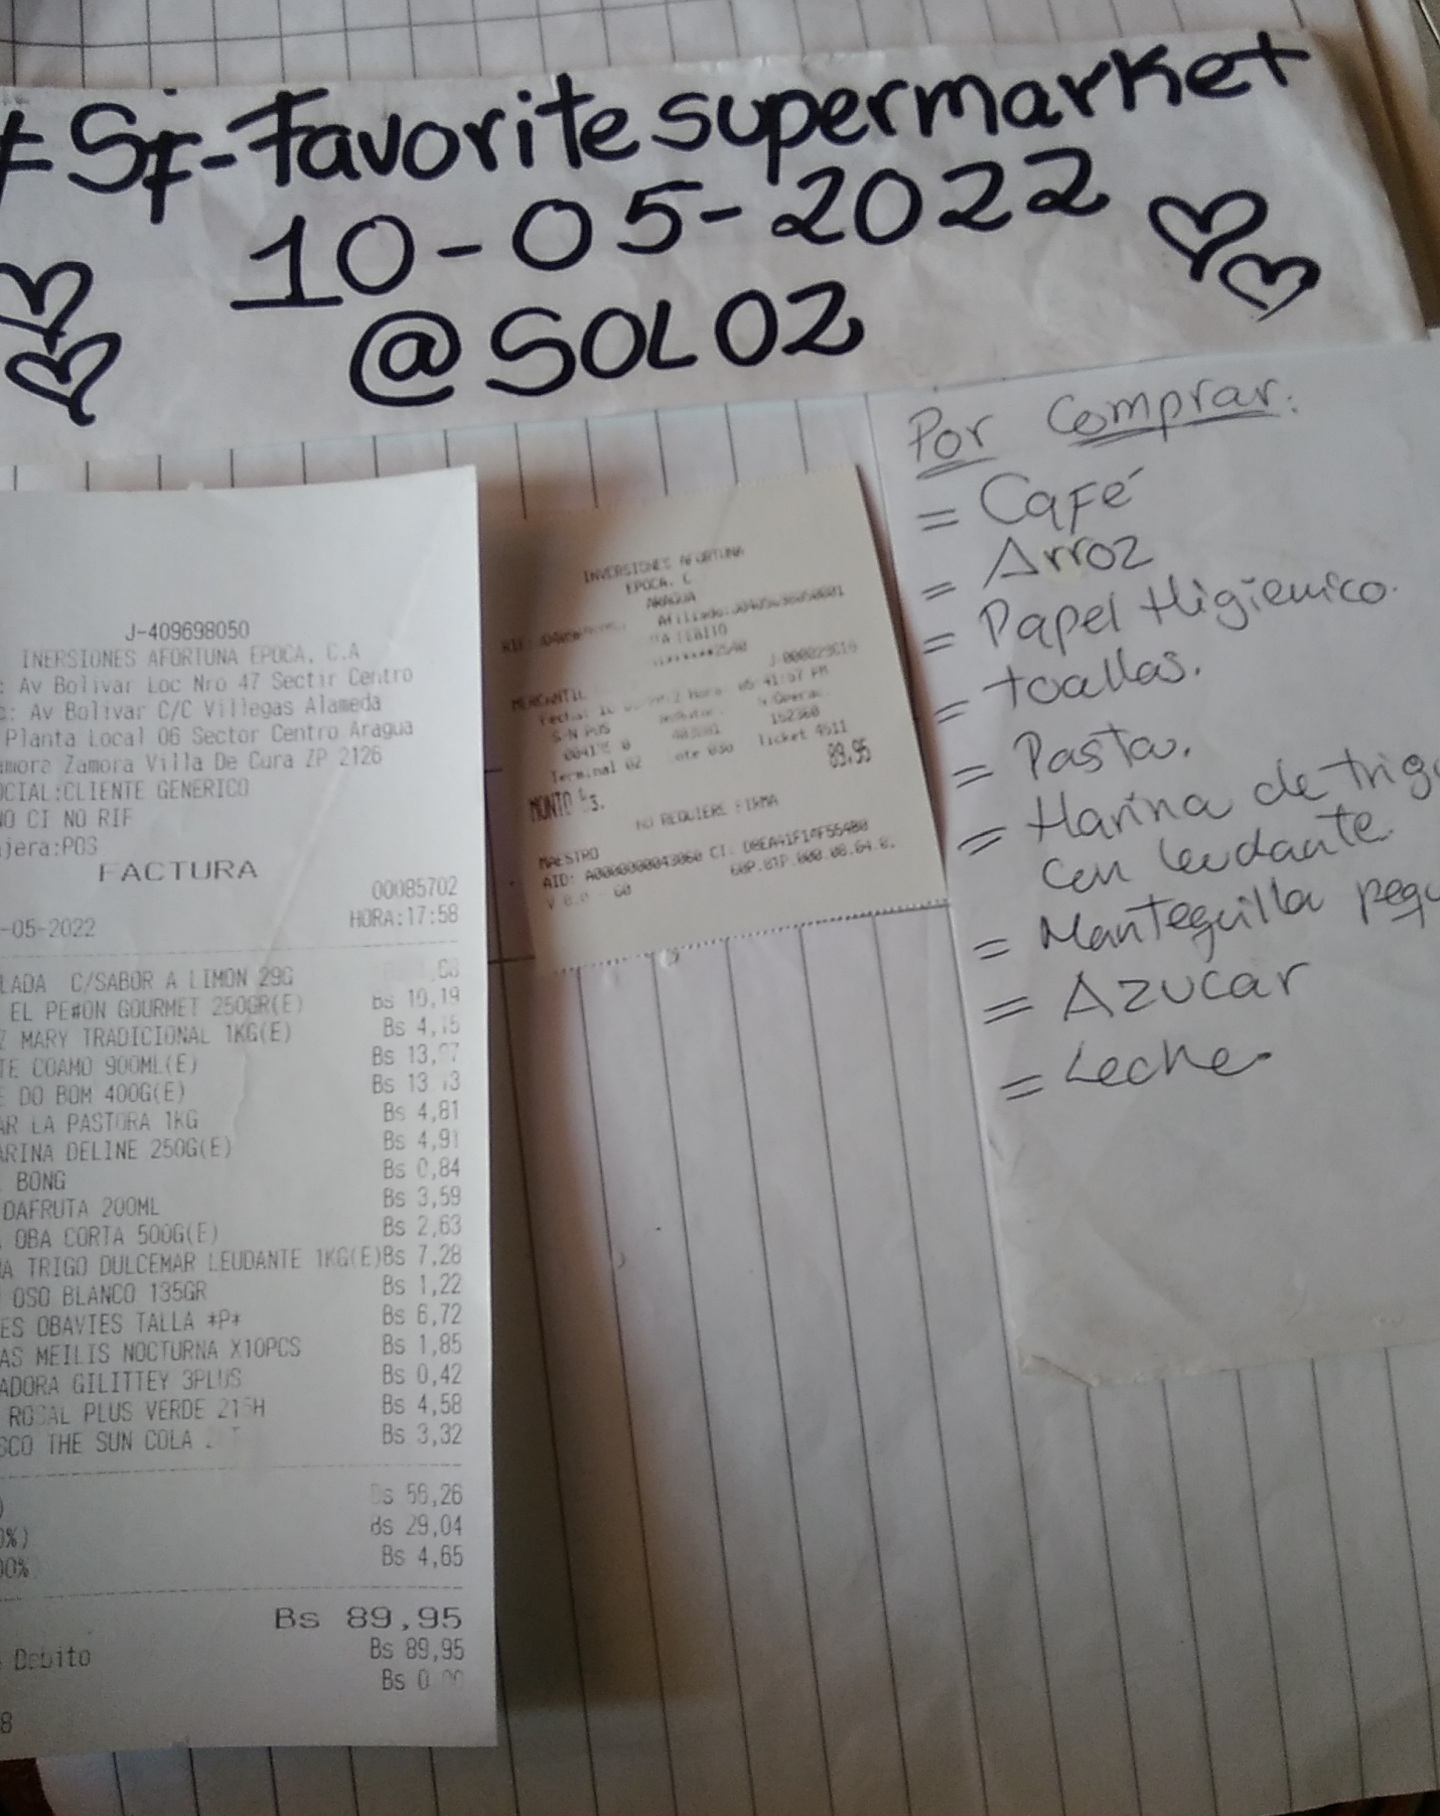 #Sf-Favorite supermarket
10-05-2022
@SOL02
J-409698050
INERSIONES AFORTUNA EPOCA, C.A
: Av Bolivar Loc Nro 47 Sectir Centro
c: Av Bolivar C/C Villegas Alameda
Planta Local 06 Sector Centro Aragua
amora Zamora Villa De Cura ZP 2126
OCIAL:CLIENTE GENERICO
NO CI NO RIF
jera:POS
FACTURA
00085702
-05-2022 HORA:17:58
LADA C/SABOR A LIMON 29G
EL PE#ON GOURMET 250GR(E) Bs 10,19
Z MARY TRADICIONAL 1KG(E) Bs 4,15
TE COAMO 900ML(E) Bs
E DO BOM 400G(E) Bs
AR LA PASTORA 1KG Bs 4,81
ARINA DELINE 250G(E) Bs 4,91
BONG Bs 0,84
DAFRUTA 200ML Bs 3,59
OBA CORTA 500G(E) Bs 2,63
NA TRIGO DULCEMAR LEUDANTE 1KG(E)Bs 7,28
OSO BLANCO 135GR Bs 1,22
ES OBAVIES TALLA *P* Bs 6,72
AS MEILIS NOCTURNA X10PCS Bs 1,85
ADORA GILITTEY 3PLUS Bs 0,42
ROSAL PLUS VERDE 215H Bs 4,58
SCO THE SUN COLA Bs 3,32
) Bs 56,26
0%) Bs 29,04
00% Bs 4,65
Bs 89,95
Debito Bs 89,95
Bs 0,00
8
INVERSIONES AFORTUNA
EPOCA, C
ARAGUA
Afiliado:
MERCANTIL
Fecha: Hora: 05:41:57 PM
S/N POS N.Operac.
162360
Terminal 02 Lote 030 Ticket 4511
MONTO Bs. 89,95
NO REQUIERE FIRMA
MAESTRO
AID: A0000000043060 CI:
Por Comprar:
= Café
= Arroz
= Papel Higienico.
= toallas.
= Pasta.
= Harina de trigo
con leudante
= Mantequilla pequ
= Azucar
= Leche.